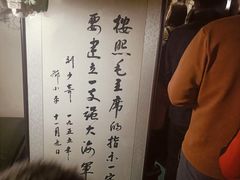 按照毛主席的指示一定
要建立一支强大海军
刘少奇 一九五五年
邓小平 十一月九日